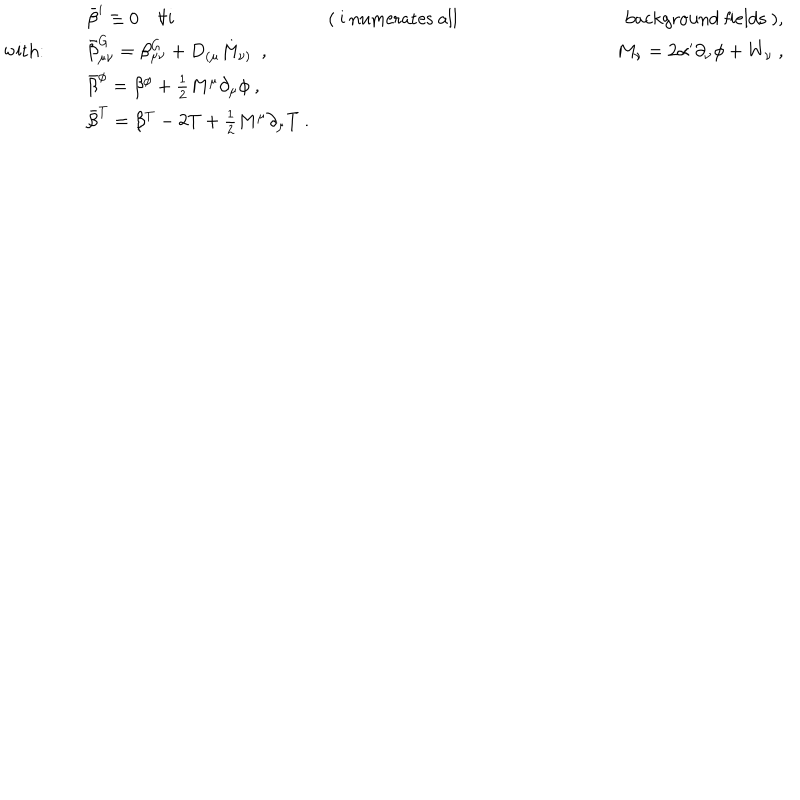 β̄ⁱ ≡ 0 ∀i ( i numerates all background fields ),
with: β̄^G_{μν} = β^G_{μν} + D_{(μ} M_{ν)} , M_ν = 2α′∂_νϕ + W_ν ,
β̄^ϕ = β^ϕ + ½ M^μ ∂_μ ϕ ,
β̄^T = β^T − 2T + ½ M^μ ∂_μ T .